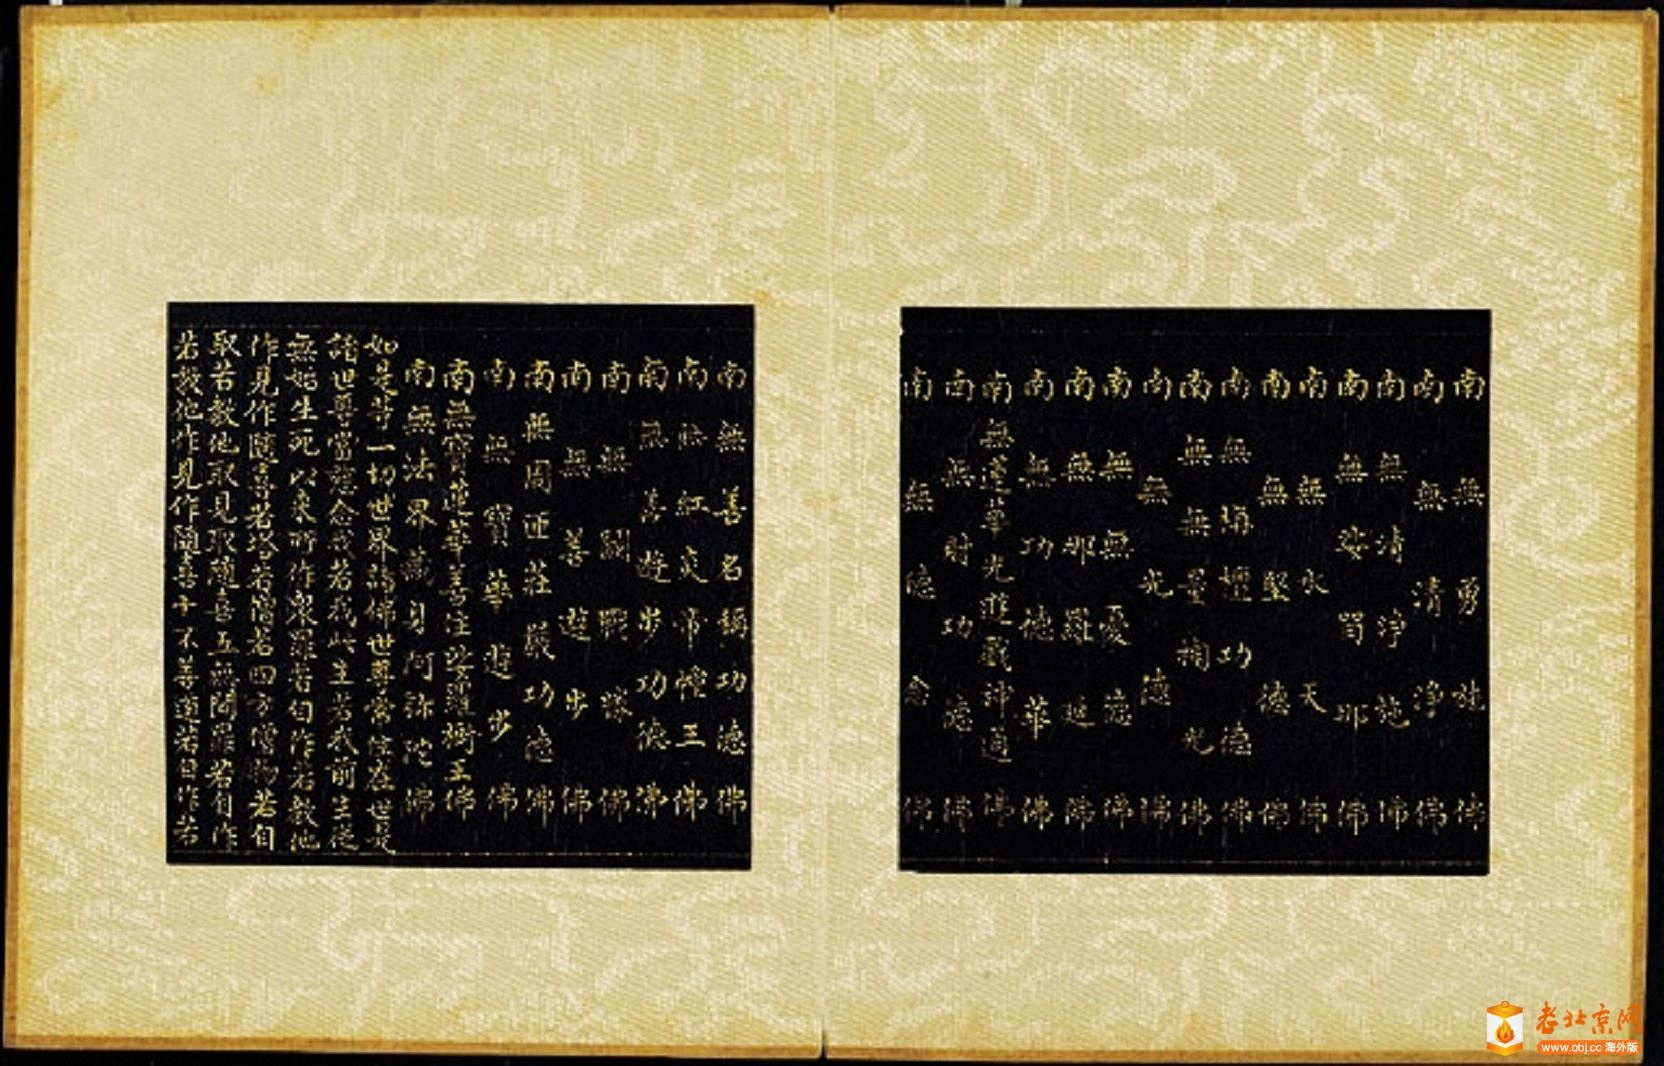 南無勇施佛
南無清淨佛
南無清淨施佛
南無娑留那佛
南無水天佛
南無堅德佛
南無栴檀功德佛
南無無量掬光佛
南無光德佛
南無無憂德佛
南無那羅延佛
南無功德華佛
南無蓮華光遊戲神通佛
南無財功德佛
南無德念佛
南無善名稱功德佛
南無紅炎帝幢王佛
南無善遊步功德佛
南無鬪戰勝佛
南無善遊步佛
南無周匝莊嚴功德佛
南無寶華遊步佛
南無寶蓮華善住娑羅樹王佛
南無法界藏身阿弥陀佛
如是等一切世界諸佛世尊常住在世是
諸世尊當慈念我若我此生若我前生從
無始生死以來所作衆罪若自作若教他
作見作隨喜若塔若僧若四方僧物若自
取若教他取見取隨喜五無間罪若自作
若教他作見作隨喜十不善道若自作若
老北京网
www.obj.cc 海外版